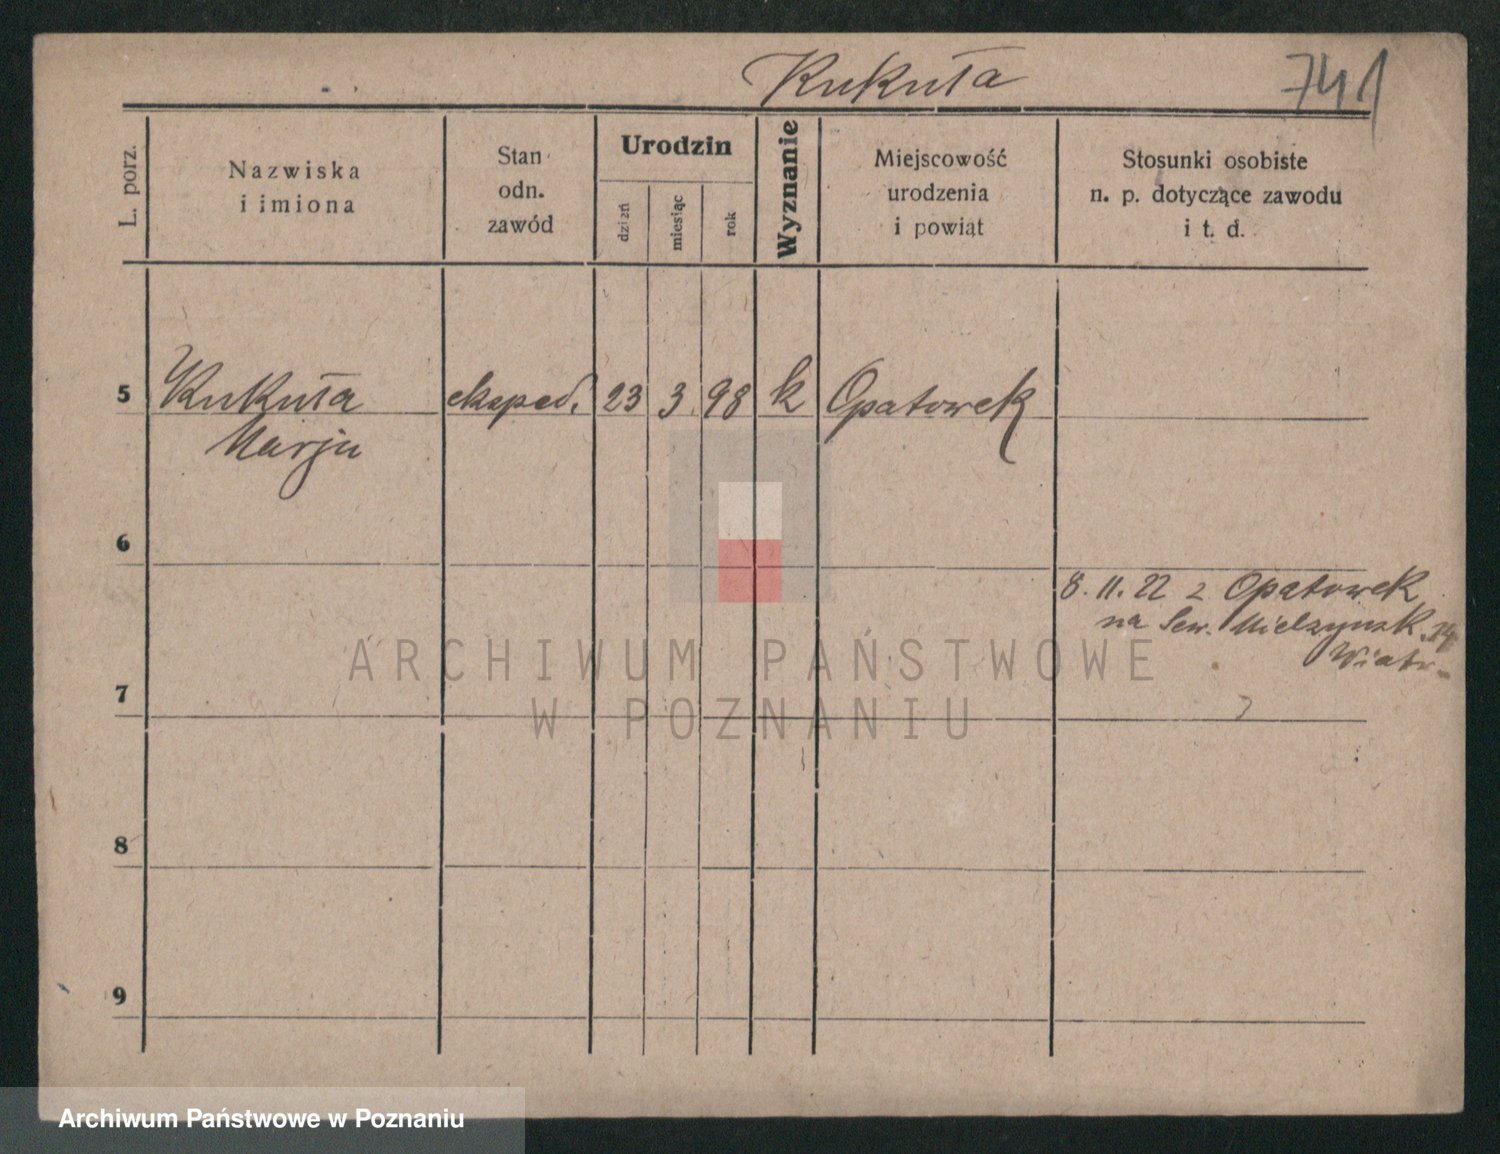 Kukuła 741
L. porz.
Nazwiska
i imiona
Stan
odn.
zawód
Urodzin
dzień
miesiąc
rok
Wyznanie
Miejscowość
urodzenia
i powiat
Stosunki osobiste
n. p. dotyczące zawodu
i t. d.
5 Kukuła eksped. 23 3 98 k Opatowek
Marja
6
8. 11. 22 z Opatowek
na Sew. Mielzynsk. 24
Wiatr.
7
8
9
ARCHIWUM PAŃSTWOWE
W POZNANIU
Archiwum Państwowe w Poznaniu